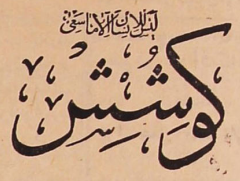 ليس للانسان الا ما سعى
كوشش